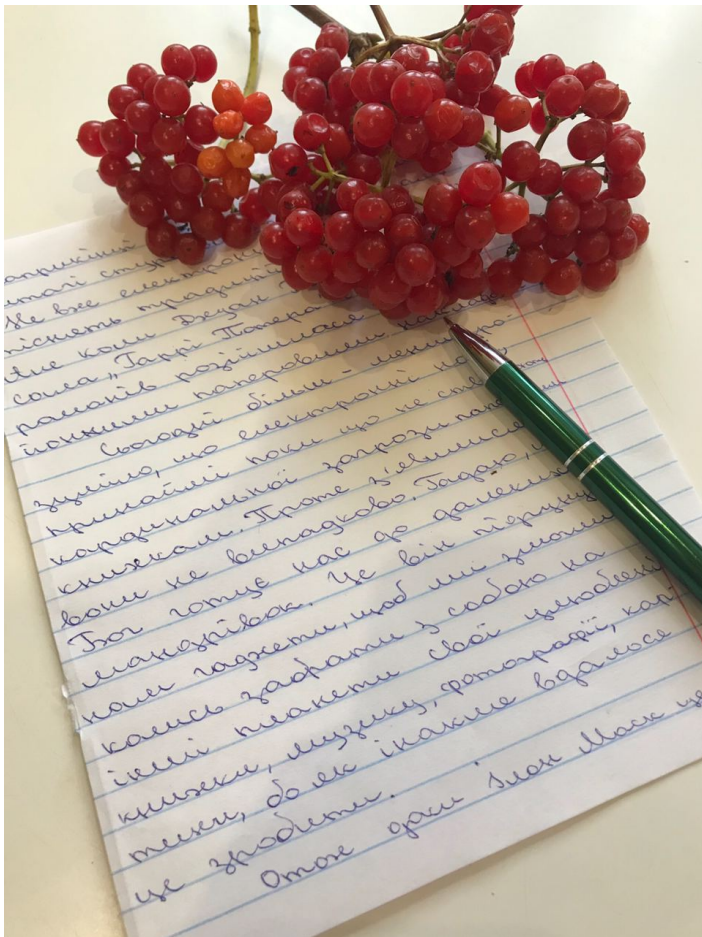 наприкінці
читачі ст
Не вже електронн
тіснять традиці
Але коли Джоан
сама „Гаррі Поттера
романів розійшлася
йонними паперовими
Сьогодні більш-менш зро-
зуміло, що електронні
принаймні поки що не ст
кардинальної загрози
книжкам. Проте з'явилися
вони не випадково. Гадаю,
Бог готує нас до далеких
мандрівок. Це він підкинув
нам гаджети, щоб ми змогли
колись забрати з собою на
інші планети свої улюблені
книжки, музику, фотографії, кар-
тини, бо як інакше вдалося
це зробити.
Отож дай Ілон Маск ще